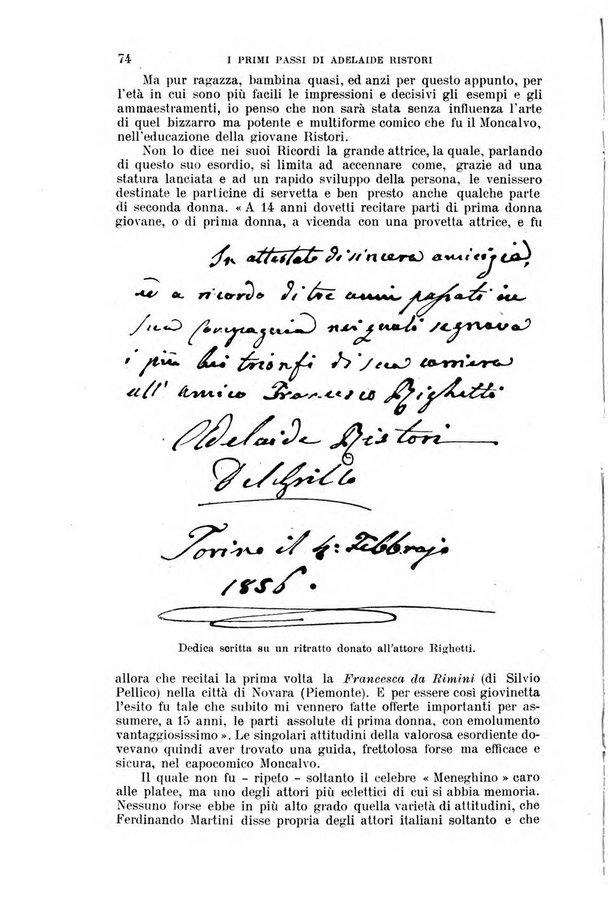 74 I PRIMI PASSI DI ADELAIDE RISTORI
Ma pur ragazza, bambina quasi, ed anzi per questo appunto, per
l'età in cui sono più facili le impressioni e decisivi gli esempi e gli
ammaestramenti, io penso che non sarà stata senza influenza l'arte
di quel bizzarro ma potente e multiforme comico che fu il Moncalvo,
nell'educazione della giovane Ristori.
Non lo dice nei suoi Ricordi la grande attrice, la quale, parlando
di questo suo esordio, si limita ad accennare come, grazie ad una
statura lanciata e ad un rapido sviluppo della persona, le venissero
destinate le particine di servetta e ben presto anche qualche parte
di seconda donna. « A 14 anni dovetti recitare parti di prima donna
giovane, o di prima donna, a vicenda con una provetta attrice, e fu
In attestato di sincera amicizia,
e a ricordo di tre anni passati in
sua Compagnia nei quali segnava
i più bei trionfi di sua carriera
all' amico Francesco Righetti
Adelaide Ristori
Del Grillo
Torino il 4: Febbrajo
1856.
Dedica scritta su un ritratto donato all'attore Righetti.
allora che recitai la prima volta la Francesca da Rimini (di Silvio
Pellico) nella città di Novara (Piemonte). E per essere così giovinetta
l'esito fu tale che subito mi vennero fatte offerte importanti per as-
sumere, a 15 anni, le parti assolute di prima donna, con emolumento
vantaggiosissimo ». Le singolari attitudini della valorosa esordiente do-
vevano quindi aver trovato una guida, frettolosa forse ma efficace e
sicura, nel capocomico Moncalvo.
Il quale non fu - ripeto - soltanto il celebre « Meneghino » caro
alle platee, ma uno degli attori più eclettici di cui si abbia memoria.
Nessuno forse ebbe in più alto grado quella varietà di attitudini, che
Ferdinando Martini disse propria degli attori italiani soltanto e che